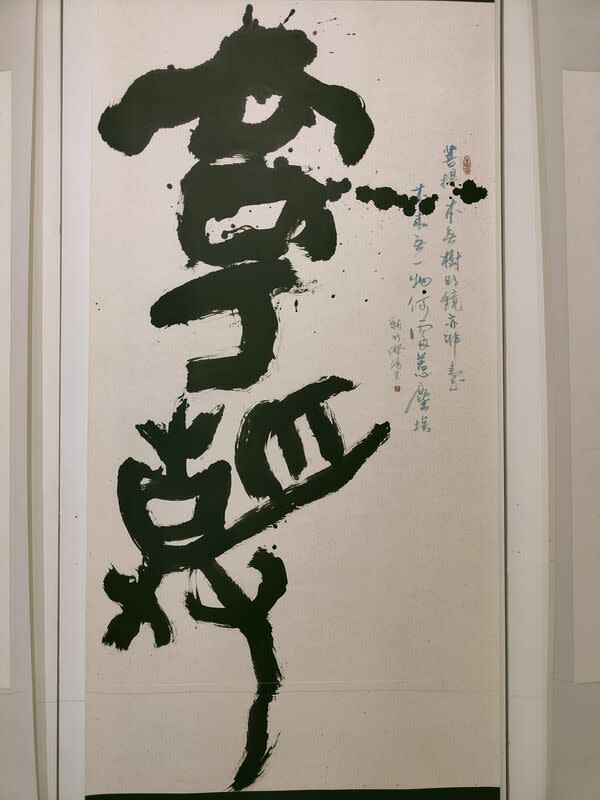 寧靜
菩提本无樹明鏡亦非臺
本來无一物何處惹塵埃
新竹